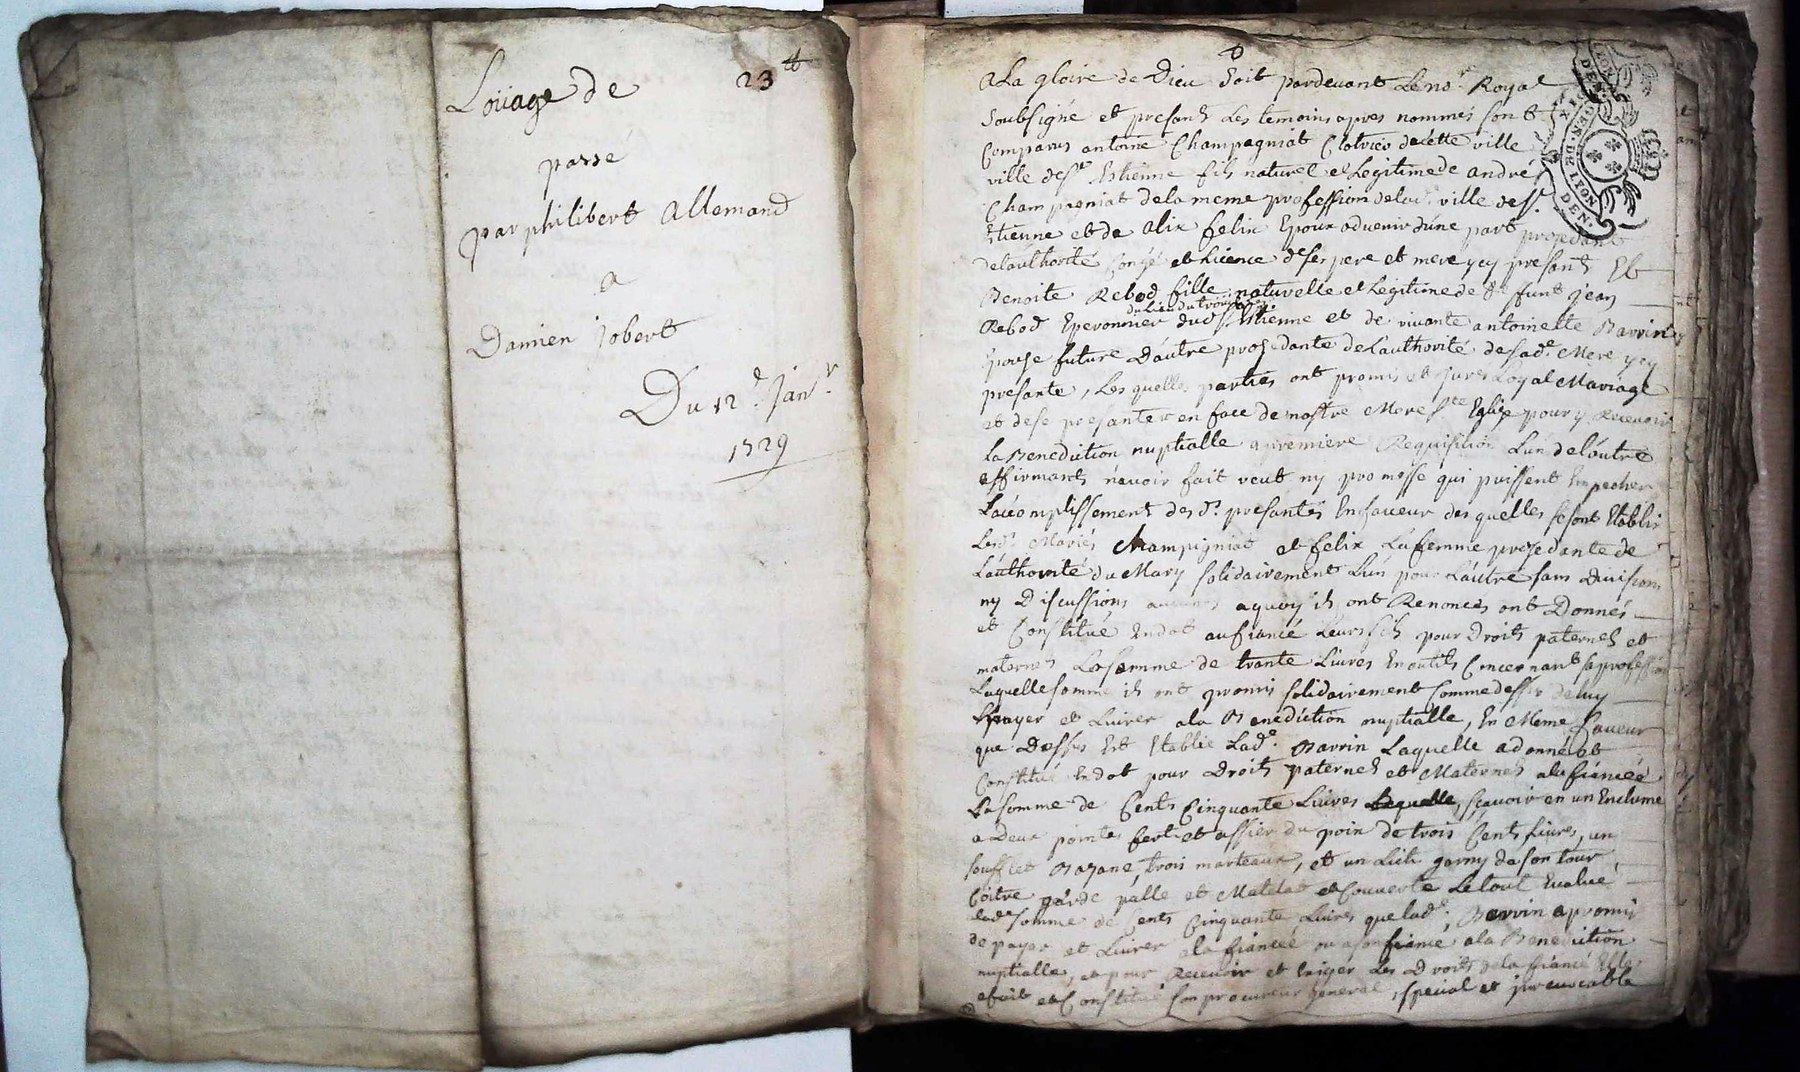 Loüage de 23 tt
passé
par philibert allemand
a
Damien jobert
Du 12e. janvr.
1729
A La gloire de Dieu Soit pardevant Le nore. Royal
soubsigné et presant Les temoins apres nommés sont
Comparus antoine Champagniat Cloutier de cette ville
ville de St. Estienne fils naturel et Legitime de andré
Champagniat de la meme profession de lad. ville de St.
Etienne et de alix felix Epoux advenir d'une part prosedant
de l'authorité congé et Licence de ses pere et mere ycy presants Et
Benoite Rebod fille naturelle et Legitime de deffunt jean
Rebod Eperonnier dud. St. Estienne et de vivante antoinette Barrin
Epouse future D'autre prosedante de L'authorité de sade. Mere ycy
presante, Les quelles parties ont promis et jurés Loyal Mariage
et de se presanter en face de nostre Mere Ste. Eglise pour y Recevoir
La Benediction nuptialle a premiere Requisition L'un de L'autre
affirmants n'avoir fait veut ny promesse qui puissent Empecher
L'acomplissement des d. presantes En faveur des quelles se sont Etablis
Lesd. Mariés Champigniat et felix La femme prosedante de
L'authorité du Mary solidairement L'un pour L'autre sans Division
ny Discussions a quoy ils ont Renoncés ont Donnés
et Constitué En dot au fiancé Leurs fils pour Droits paternels et
maternels La somme de trante Livres En outils Concernant sa profession
Laquelle somme ils ont promis solidairement comme dessus de luy
payer et Livrer a la Benediction nuptialle, En Meme faveur
que Dessus Est Etablie Lade. Barrin Laquelle a donné et
Constitué En dot pour Droits paternels et Maternels a la fiancée
La somme de Cents Cinquante Livres sçavoir en un Enclume
a Deux pointes fert et assier du poin de trois Cents Livres, un
soufflet Bazane, trois marteaux, et un Lict garny de son tour
Coitre garde palle et Matelat et Couverte Le tout Evalué
lade somme de Cents Cinquante Livres que lade. Barrin a promis
de payer et Livrer a la fiancée ou a son fiancé a la Benediction
nuptialle, et pour Recevoir et Exiger Les Droits de la fiancé Elle
a fait et Constitué son procureur general, special et jrrevocable